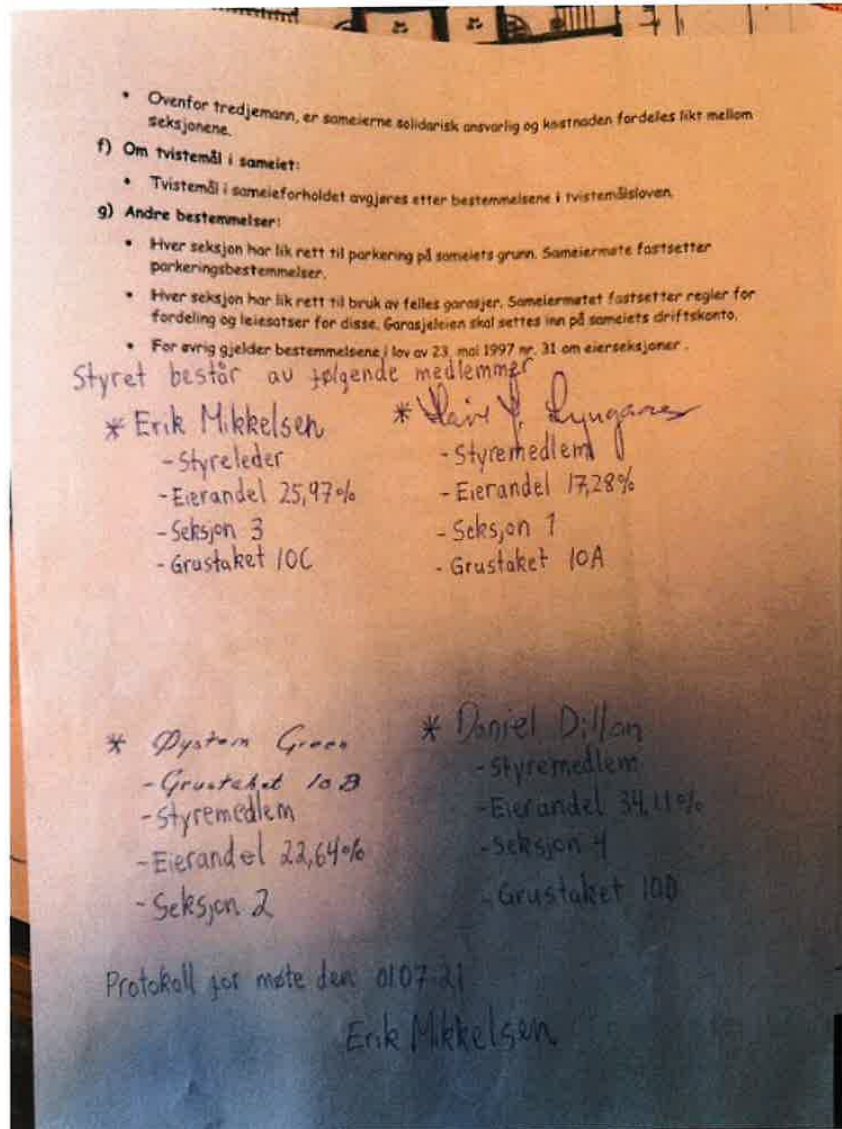 • Ovenfor tredjemann, er sameierne solidarisk ansvarlig og kostnaden fordeles likt mellom
seksjonene.
f) Om tvistemål i sameiet:
• Tvistemål i sameieforholdet avgjøres etter bestemmelsene i tvistemålsloven.
g) Andre bestemmelser:
• Hver seksjon har lik rett til parkering på sameiets grunn. Sameiermøte fastsetter
parkeringsbestemmelser.
• Hver seksjon har lik rett til bruk av felles garasjer. Sameiermøtet fastsetter regler for
fordeling og leiesatser for disse. Garasjeleien skal settes inn på sameiets driftskonto.
• For øvrig gjelder bestemmelsene i lov av 23. mai 1997 nr. 31 om eierseksjoner .
Styret består av følgende medlemmer
* Erik Mikkelsen
- Styreleder
- Eierandel 25,97%
- Seksjon 3
- Grustaket 10C
*
- Styremedlem
- Eierandel 17,28%
- Seksjon 1
- Grustaket 10A
* Øystein Green
- Grustaket 10B
- Styremedlem
- Eierandel 22,64%
- Seksjon 2
* Daniel Dillon
- Styremedlem
- Eierandel 34,11%
- Seksjon 4
- Grustaket 10D
Protokoll for møte den 01.07.21
Erik Mikkelsen